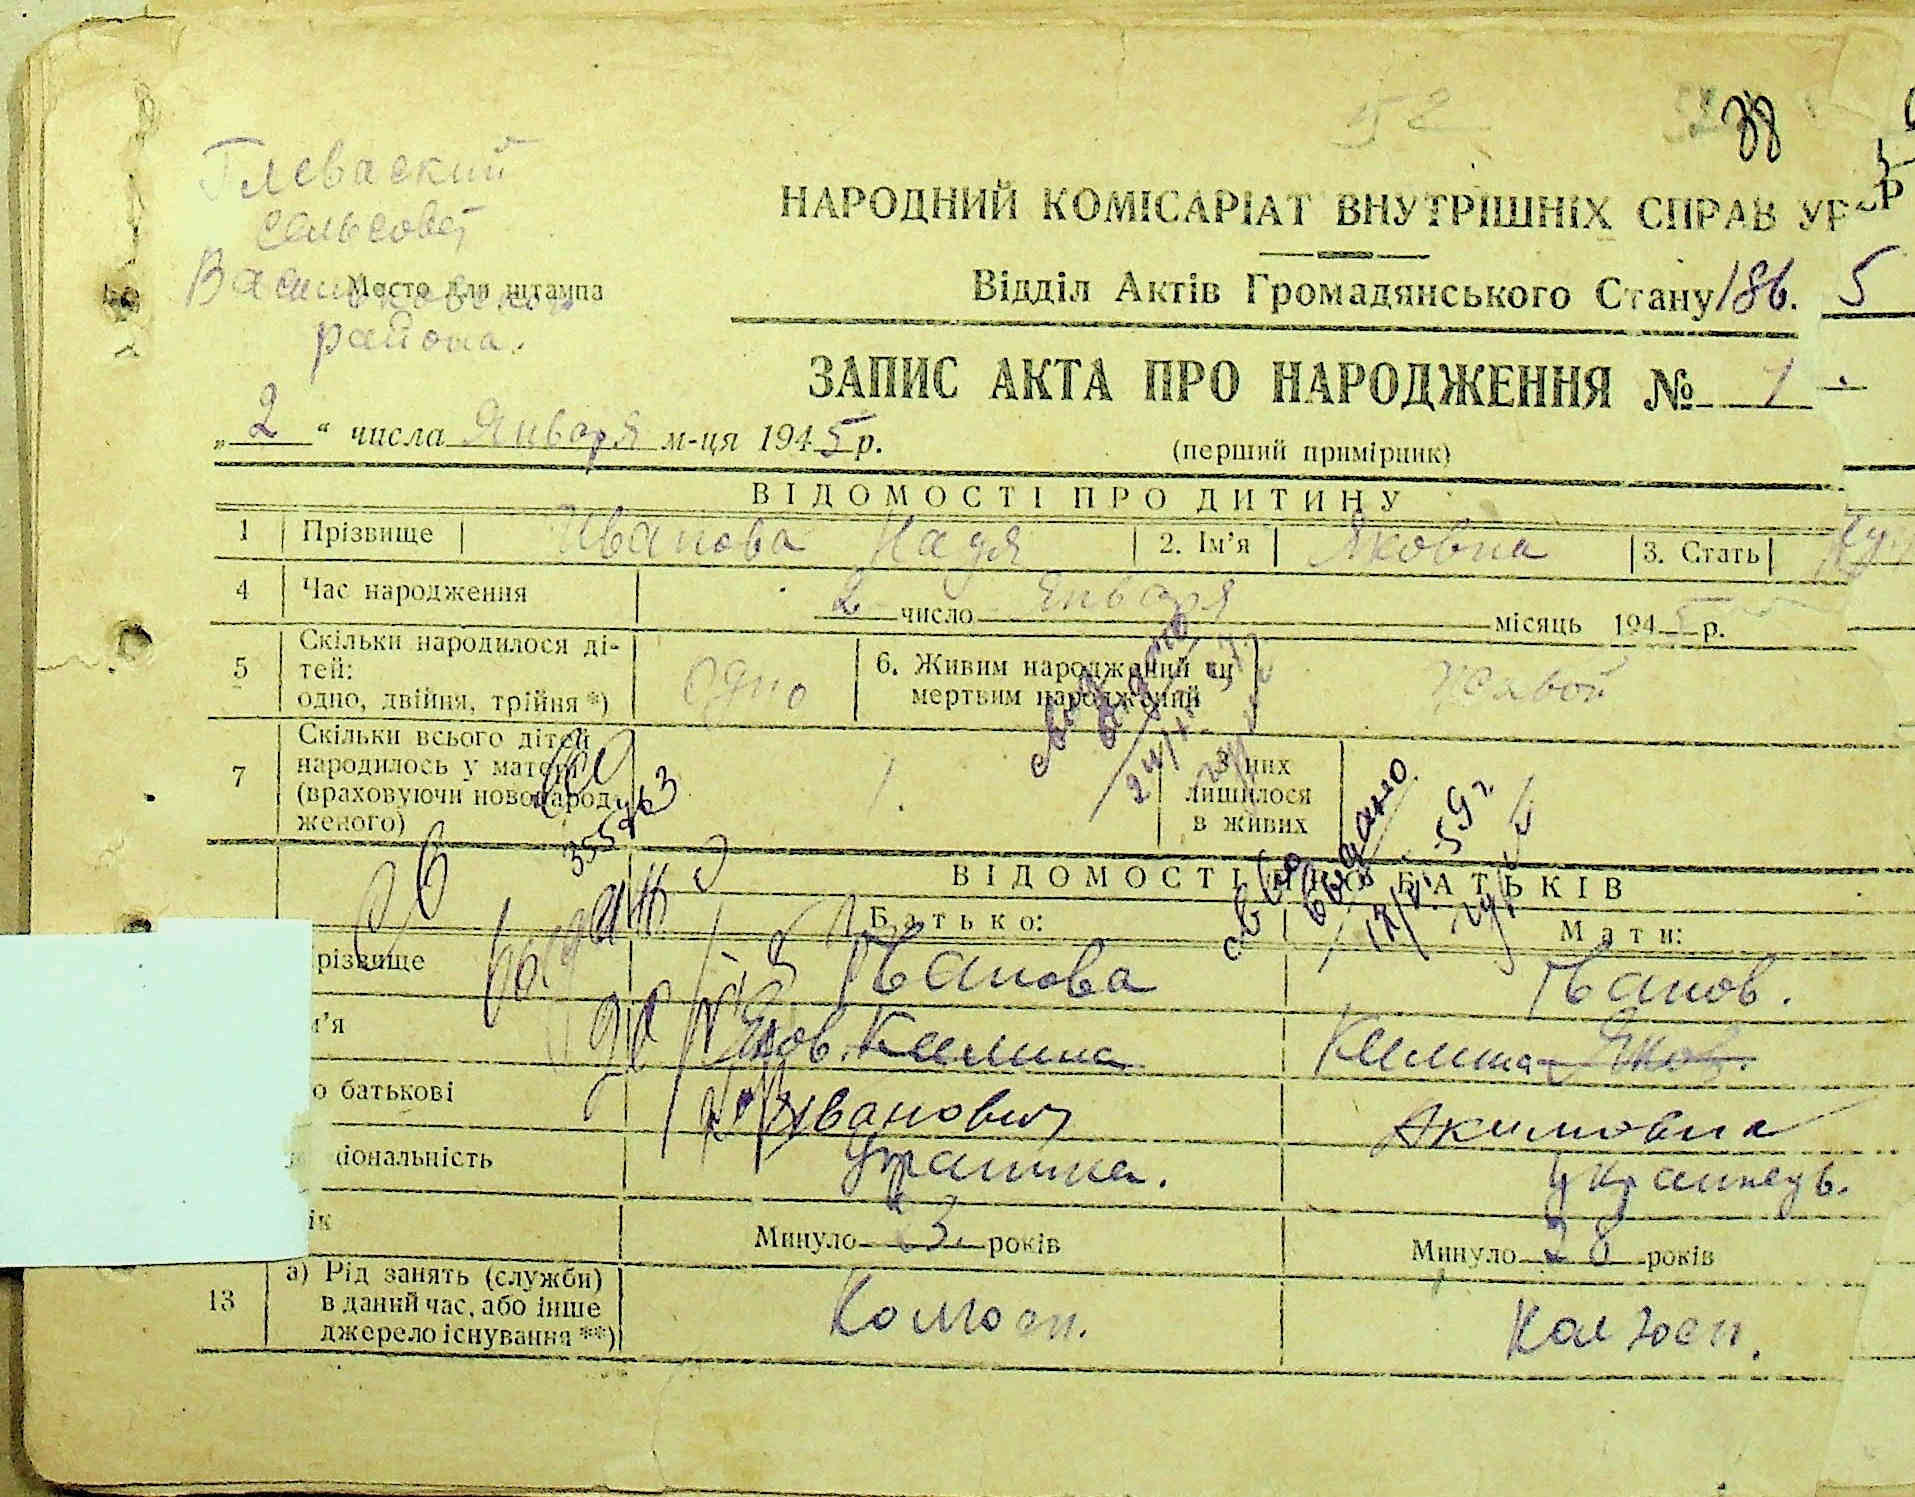 52
38
Глеваский
сельсовет
района.
Место для штампа
НАРОДНИЙ КОМІСАРІАТ ВНУТРІШНІХ СПРАВ УР
Відділ Актів Громадянського Стану 186. 5
ЗАПИС АКТА ПРО НАРОДЖЕННЯ № 1
„ 2 “ числа Января м-ця 1945 р.
(перший примірник)
ВІДОМОСТІ ПРО ДИТИНУ
1 Прізвище Иванова Надя 2. Ім’я Яковна 3. Стать
4 Час народження 2 число Января місяць 1945 р.
5 Скільки народилося ді-
тей:
одно, двійня, трійня *) Одно
6. Живим народжений чи
мертвим народжений Живой
7 Скільки всього дітей
народилось у матері
(враховуючи новонарод-
женого) 1.
З них
лишилося
в живих
ВІДОМОСТІ ПРО БАТЬКІВ
Батько: Мати:
різвище Іванова Іванов.
м’я Яков. Калина Калина Яков.
о батькові Иванович Акимовна
іональність Українка. Українець.
ік Минуло 23. років Минуло 28 років
13 а) Рід занять (служби)
в даний час, або інше
джерело існування **) Колхосп. Колхосп.